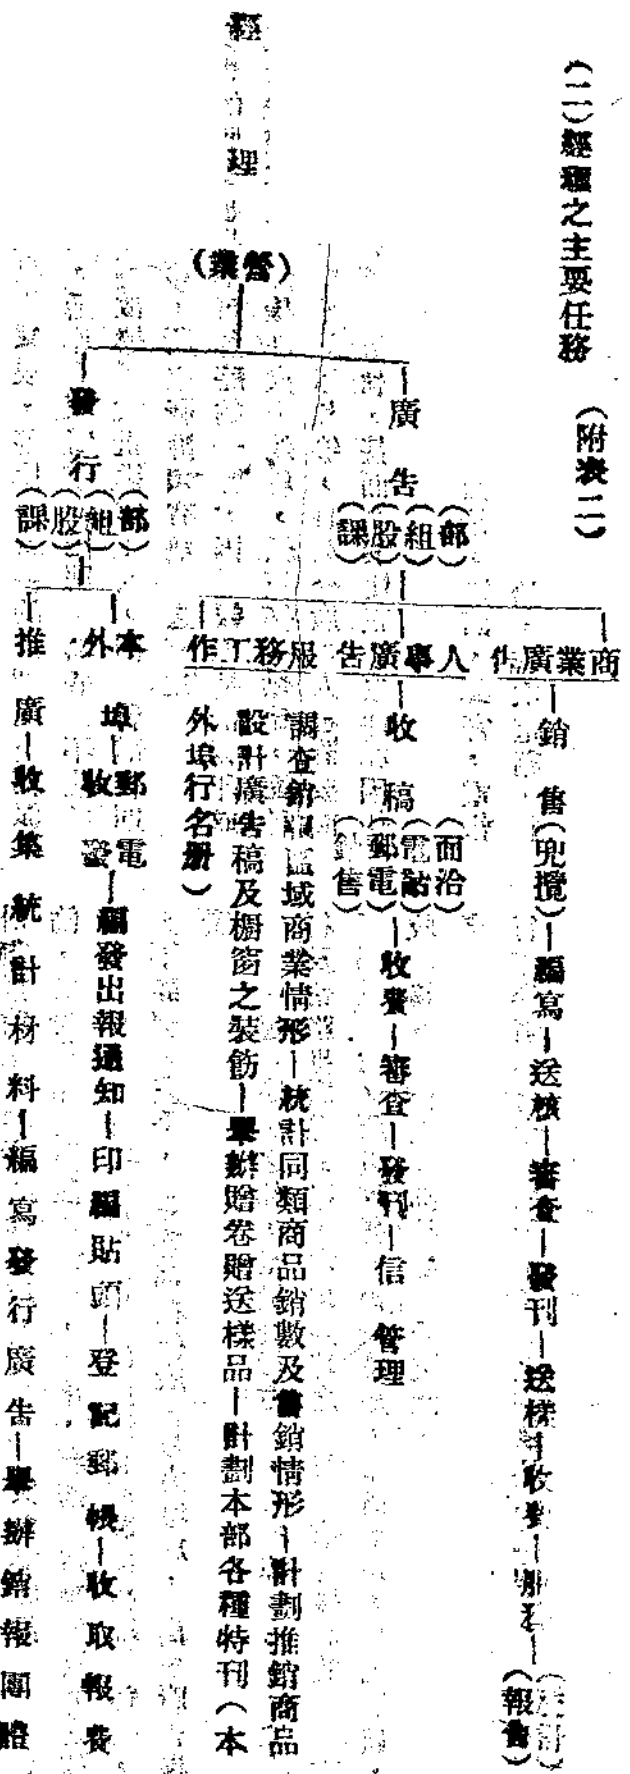 (二)經理之主要任務 (附表二)
經理
(營業)
廣告
(部)(組)(股)(課)
商業廣告
銷售(兜攬)—編寫—送核—審查—發刊—送樣—收費
(報告)
人事廣告
收稿
(面洽)
(電話)
(郵電)
(銷售)
收費—審查—發刊—信 管理
服務工作
調查銷報區域商業情形—統計同類商品銷數及售銷情形—計劃推銷商品
設計廣告稿及櫥窗之裝飾—舉辦贈卷贈送樣品—計劃本部各種特刊(本
外埠行名册)
發行
(部)(組)(股)(課)
本埠
外
郵電
收發
編發出報通知—印編貼頭—登記郵帳—收取報費
推廣—收集統計材料—編寫發行廣告—舉辦銷報團體